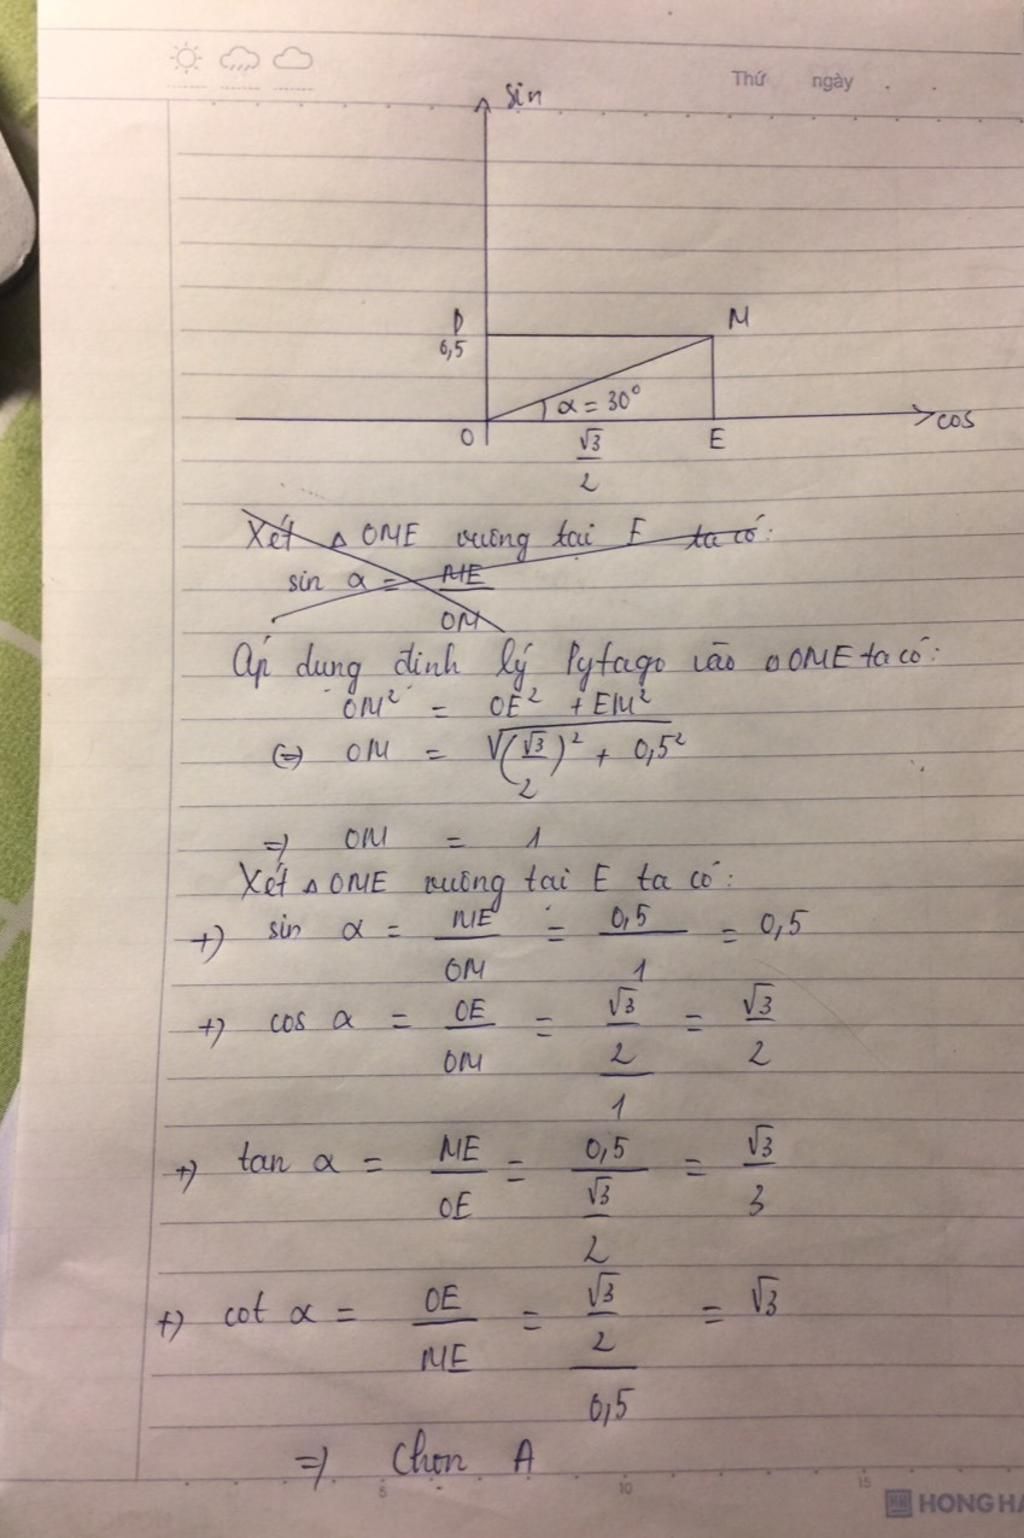 Thứ ngày
sin
D
M
0,5
α = 30°
O
√3/2
E
cos
Xét Δ OME vuông tại E ta có:
sin α = ME/OM
Áp dụng định lý Pytago vào ΔOME ta có:
OM² = OE² + EM²
(=) OM = √((√3/2)² + 0,5²)
=) OM = 1
Xét Δ OME vuông tại E ta có:
+) sin α = ME/OM = 0,5/1 = 0,5
+) cos α = OE/OM = (√3/2)/1 = √3/2
+) tan α = ME/OE = 0,5/(√3/2) = √3/3
+) cot α = OE/ME = (√3/2)/0,5 = √3
=) Chọn A
5 10 15
HONG HA